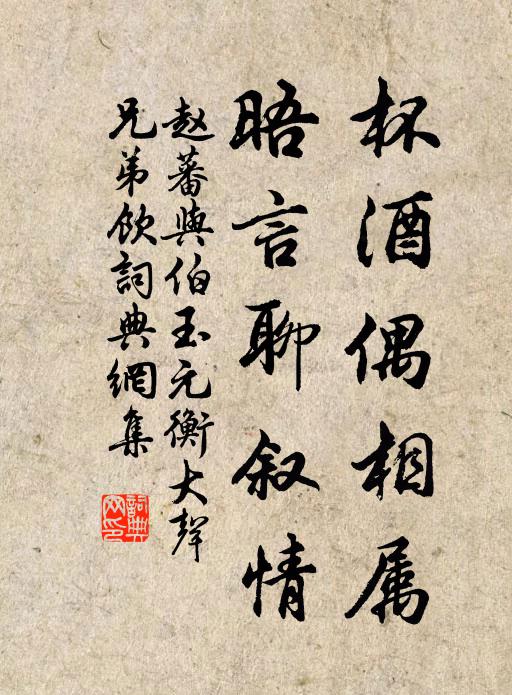 杯酒偶相属
晤言聊叙情
赵蕃與伯玉元衡大聲
兄弟飲詞典網集
詞典网印